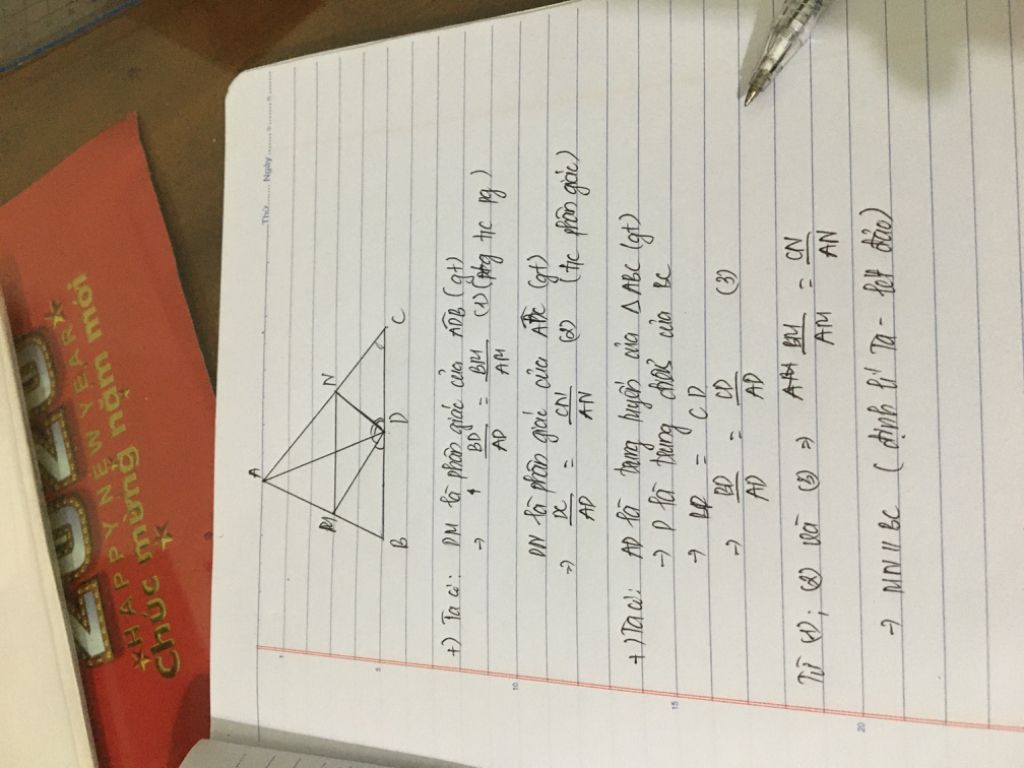 2020
HAPPY NEW YEAR
Chúc mừng năm mới
Thứ........ Ngày........
A
M N
B D C
+) Ta có: DM là phân giác của ADB (gt)
→ BD/AD = BM/AM (1) (t/c pg)
DN là phân giác của ADC (gt)
→ DC/AD = CN/AN (2) (t/c phân giác)
+) Ta có: AD là trung tuyến của △ ABC (gt)
→ D là trung điểm của BC
→ BD = CD
→ BD/AD = CD/AD (3)
Từ (1); (2) và (3) → BM/AM = CN/AN
→ MN // BC (định lí Ta - lét đảo)
5
10
15
20